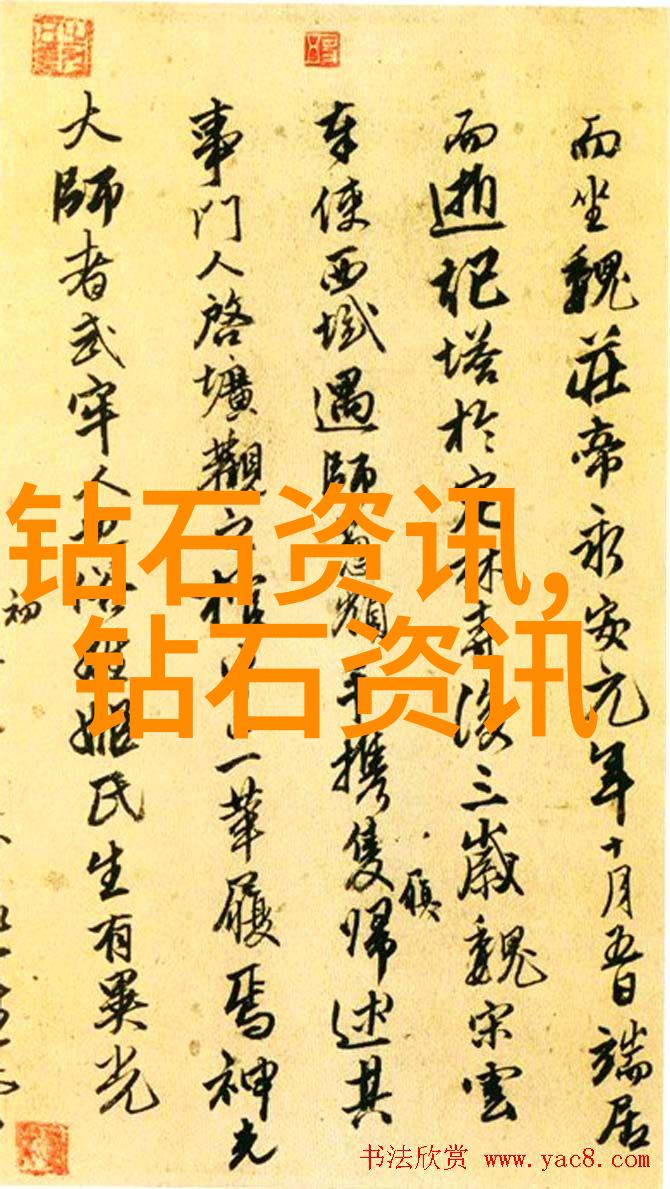 而坐魏莊帝永安元年十月五日端居
而逝記塔於定林寺後三歲魏宋雲
奉使西域遇師手攜隻歸述其
履
事門人啓壙觀一革履焉神光
大師者武牢人姬氏生有異光
初
钻石资讯,
钻石资讯
书法欣赏 www.yac8.com